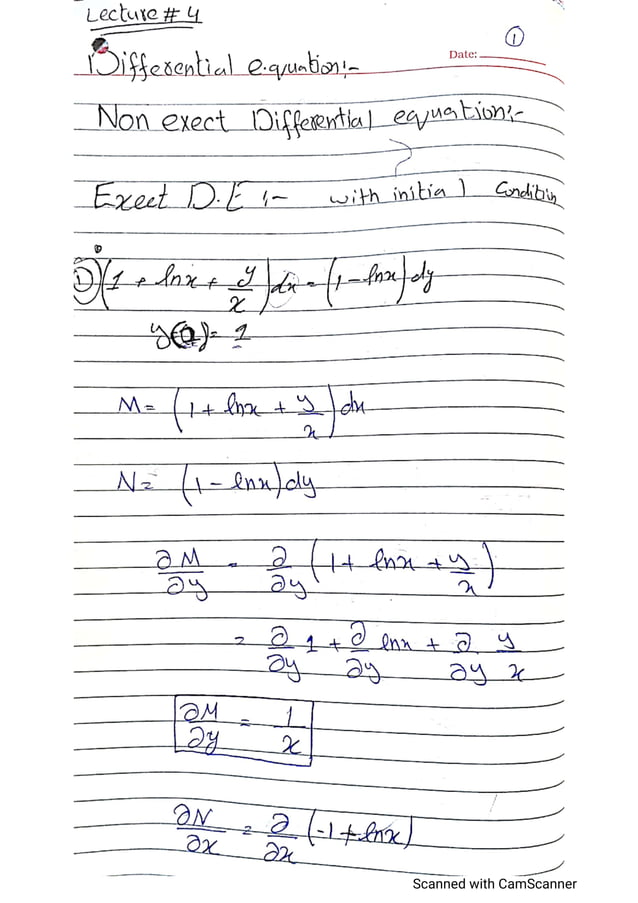 Lecture # 4
①
Date:
Differential equation:-
Non exect Differential equation:-
Exect D.E :- with initial Condition
① (1 + lnx + y/x) dx = (1 - lnx) dy
y( ) = 1
M = (1 + lnx + y/x) dx
N = (1 - lnx) dy
∂M/∂y = ∂/∂y (1 + lnx + y/x)
= ∂/∂y 1 + ∂/∂y lnx + ∂/∂y y/x
∂M/∂y = 1/x
∂N/∂x = ∂/∂x (-1 + lnx)
Scanned with CamScanner